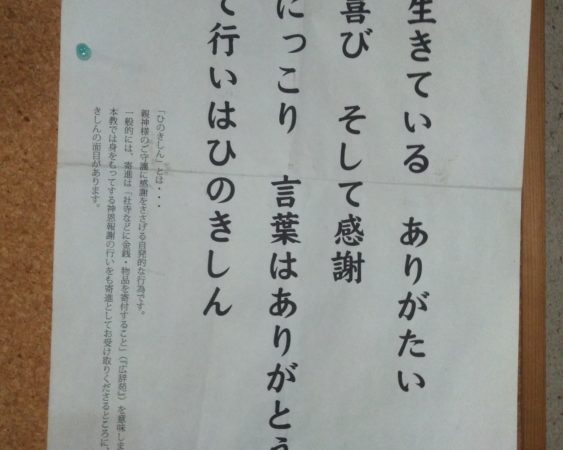 生きている　ありがたい
喜び　そして感謝
にっこり　言葉はありがとう
て行いはひのきしん
「ひのきしん」とは・・・
親神様のご守護に感謝をささげる自発的な行為です。
一般的には、寄進は「社寺などに金銭・物品を寄付すること」(『広辞苑』)を意味しま
本教では身をもってする神恩報謝の行いをも寄進としてお受け取りくださるところに、
きしんの面目があります。